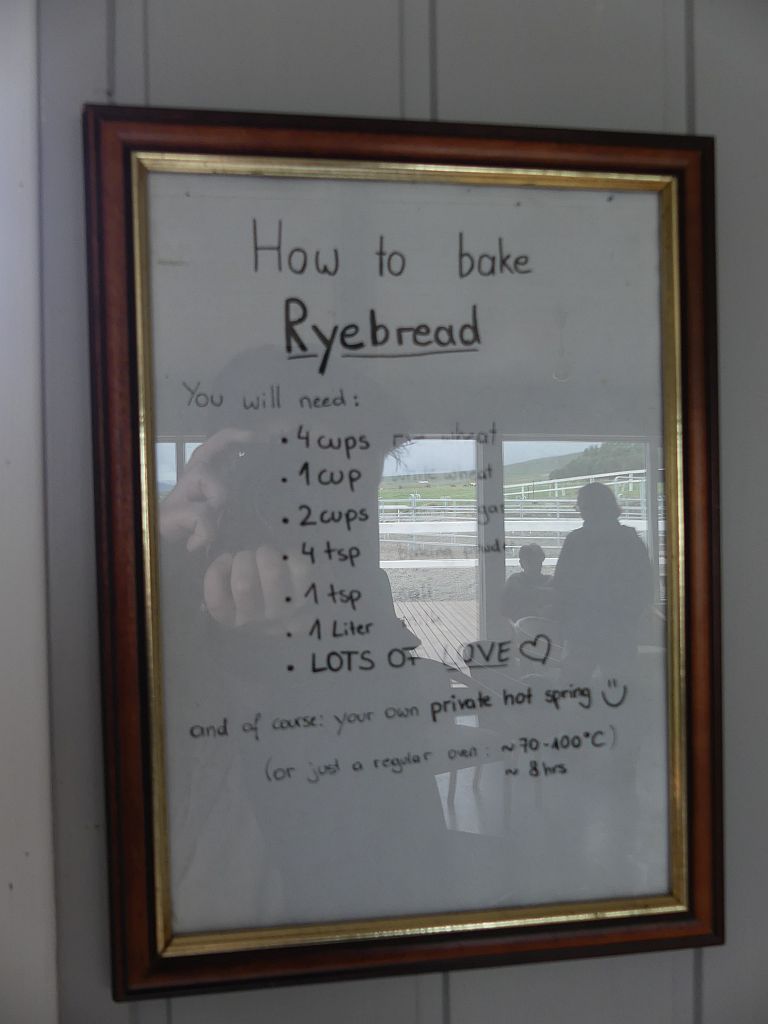 How to bake
Ryebread
You will need:
• 4 cups rye wheat
• 1 cup wheat
• 2 cups sugar
• 4 tsp baking powder
• 1 tsp salt
• 1 Liter
• LOTS OF LOVE ♡
and of course: your own private hot spring ☺
(or just a regular oven: ~70-100°C)
~ 8 hrs